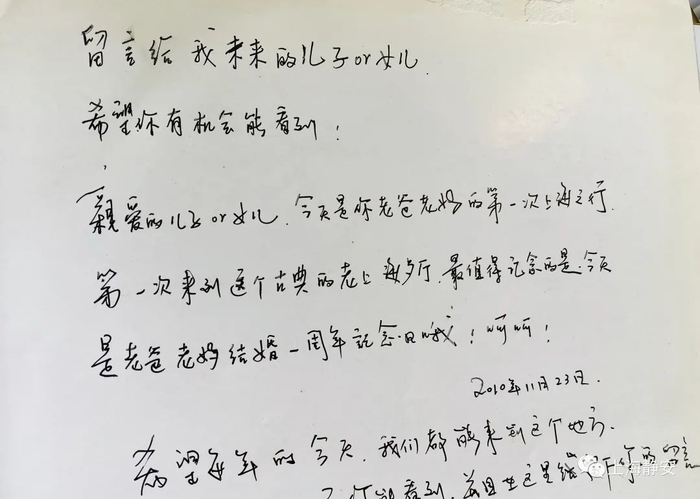 留言给我未来的儿子or女儿
希望你有机会能看到！
亲爱的儿子or女儿，今天是你老爸老妈的第一次上海之行，
第一次来到这个古典的老上海餐厅，最值得记念的是，今天
是老爸老妈结婚一周年记念日哦！呵呵！
2010年11月23日.
希望每年的今天，我们都能来到这个地方.
看到，并且在这里给你的留言
上海静安